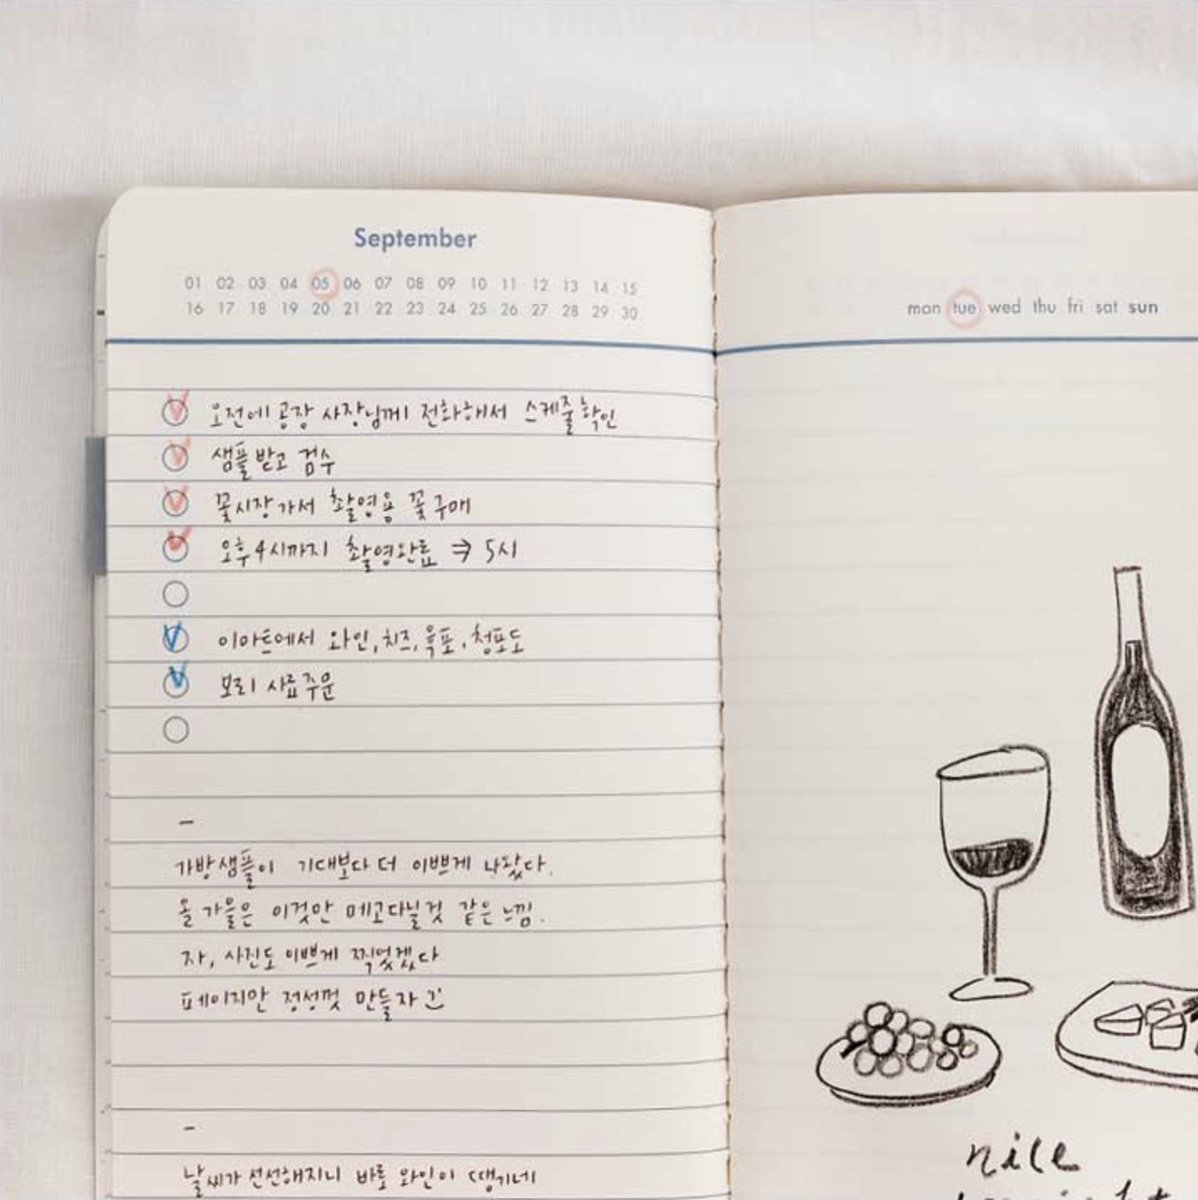 September
01 02 03 04 05 06 07 08 09 10 11 12 13 14 15
16 17 18 19 20 21 22 23 24 25 26 27 28 29 30
오전에 공장 사장님께 전화해서 스케줄확인
샘플받고 검수
꽃시장가서 촬영용 꽃구매
오후4시까지 촬영완료 ⇒ 5시
이마트에서 와인, 치즈, 육포, 청포도
보리 사료주문
–
가방샘플이 기대보다 더 이쁘게 나왔다.
올 가을은 이것만 메고다닐것 같은 느낌.
자, 사진도 이쁘게 찍었겠다
페이지만 정성껏 만들자
–
날씨가 선선해지니 바로 와인이 땡기네
mon tue wed thu fri sat sun
nice